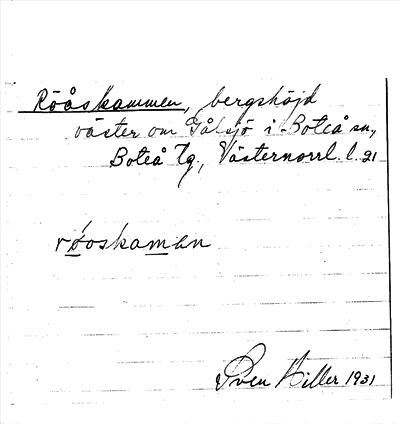 Rööskammen, bergshöjd
väster om Gålsjö i Boteå sn,
Boteå tg., Västernorrl. l. 21
röoskamen
Sven Hiller 1931